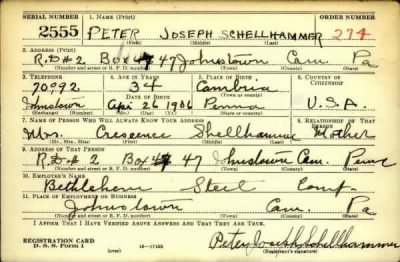 SERIAL NUMBER 1. NAME (Print) ORDER NUMBER
2555 PETER JOSEPH SCHELLHAMMER 274
(First) (Middle) (Last)
2. ADDRESS (Print)
R.D#2 Box 47 Johnstown Cam. Pa
(Number and street or R. F. D. number) (Town) (County) (State)
3. TELEPHONE 4. AGE IN YEARS 5. PLACE OF BIRTH 6. COUNTRY OF CITIZENSHIP
70992 34 Cambria
DATE OF BIRTH
Johnstown Apr 26 1906 Penna U.S.A.
(Exchange) (Number) (Mo.) (Day) (Yr.) (State or country)
7. NAME OF PERSON WHO WILL ALWAYS KNOW YOUR ADDRESS 8. RELATIONSHIP OF THAT PERSON
Mrs. Crescence Shellhammer Mother
(Mr., Mrs., Miss) (First) (Middle) (Last)
9. ADDRESS OF THAT PERSON
R.D#2 Box 47 Johnstown Cam. Penna
(Number and street or R. F. D. number) (Town) (County) (State)
10. EMPLOYER'S NAME
Bethlehem Steel Comp.
11. PLACE OF EMPLOYMENT OR BUSINESS
Johnstown Cam. Pa
(Number and street or R. F. D. number) (Town) (County) (State)
I AFFIRM THAT I HAVE VERIFIED ABOVE ANSWERS AND THAT THEY ARE TRUE.
REGISTRATION CARD
D. S. S. FORM 1 (over) 16-17105 Peter Joseph Schellhammer
(Registrant's signature)